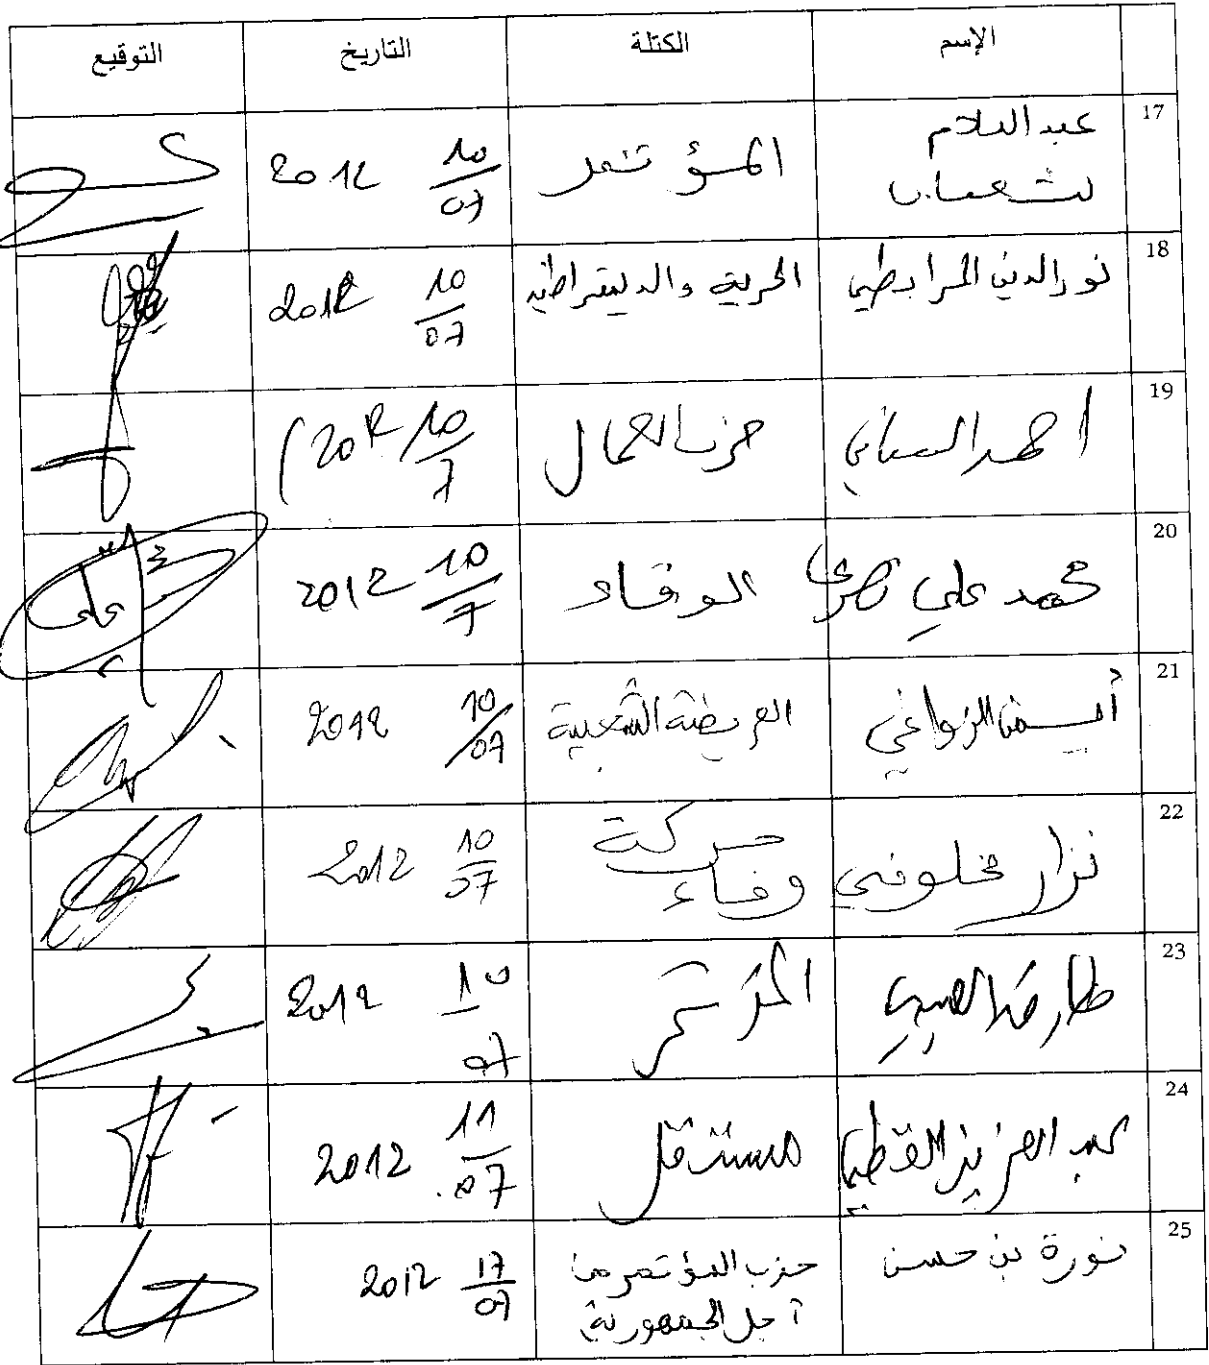 الإسم الكتلة التاريخ التوقيع
17 عبد السلام شعبان المؤتمر 10/07 2012
18 نور الدين المرابطي الحرية والديمقراطية 10/07 2012
19 أحمد السافي حزب العمال 10/7 2012
20 محمد علي نصري الوفاء 10/7 2012
21 أيمن الزواغي العريضة الشعبية 10/07 2012
22 نزار مخلوفي حركة وفاء 10/07 2012
23 طارق المؤتمر 10/07 2012
24 عبد العزيز القطي مستقل 11/07 2012
25 نورة بن حسن حزب المؤتمر من أجل الجمهورية 17/07 2012